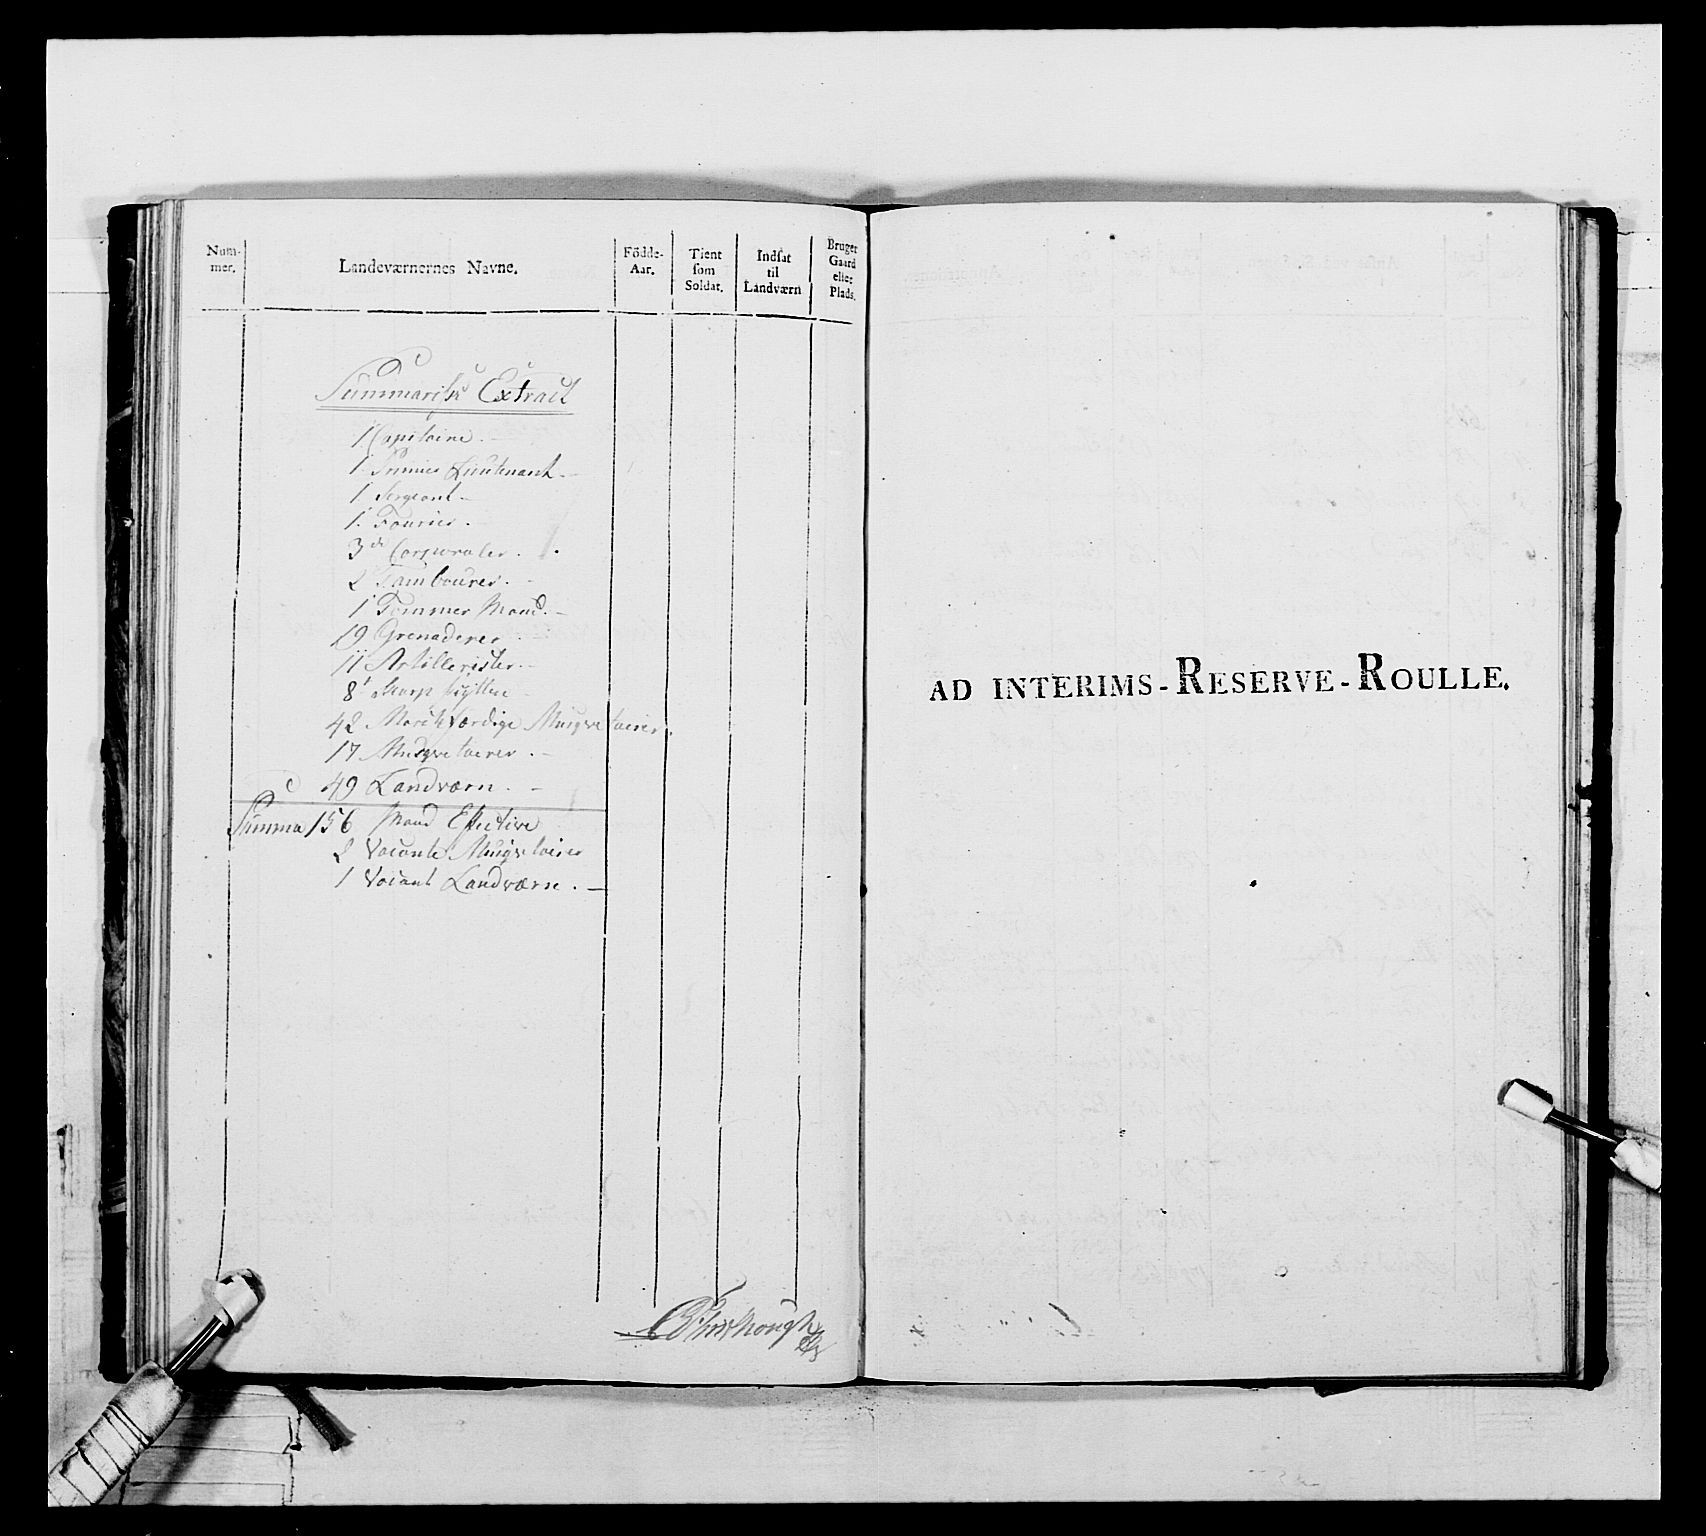 Num-
mer.
Landeværnernes Navne.
Födde-
Aar.
Tient
som
Soldat.
Indsat
til
Landværn
Bruger
Gaard
eller
Plads.
Summarisk Extract
1. Capitaine.
1. Premier Lieutenant
1 Sergeant
1. Fourier.
3de Corporaler.
2 Tambourer.
1 Tømmer Mand.
19 Grenaderer
11 Artillerister.
8t Skarp skytter
42 Marchfærdige Musqvetaerer.
17 Musqvetaerer.
49 Landværn.
Summa 156 Mand Effective
2 Vacante Musqvetaerer
1 Vacant Landværn.
AD INTERIMS-RESERVE-ROULLE.